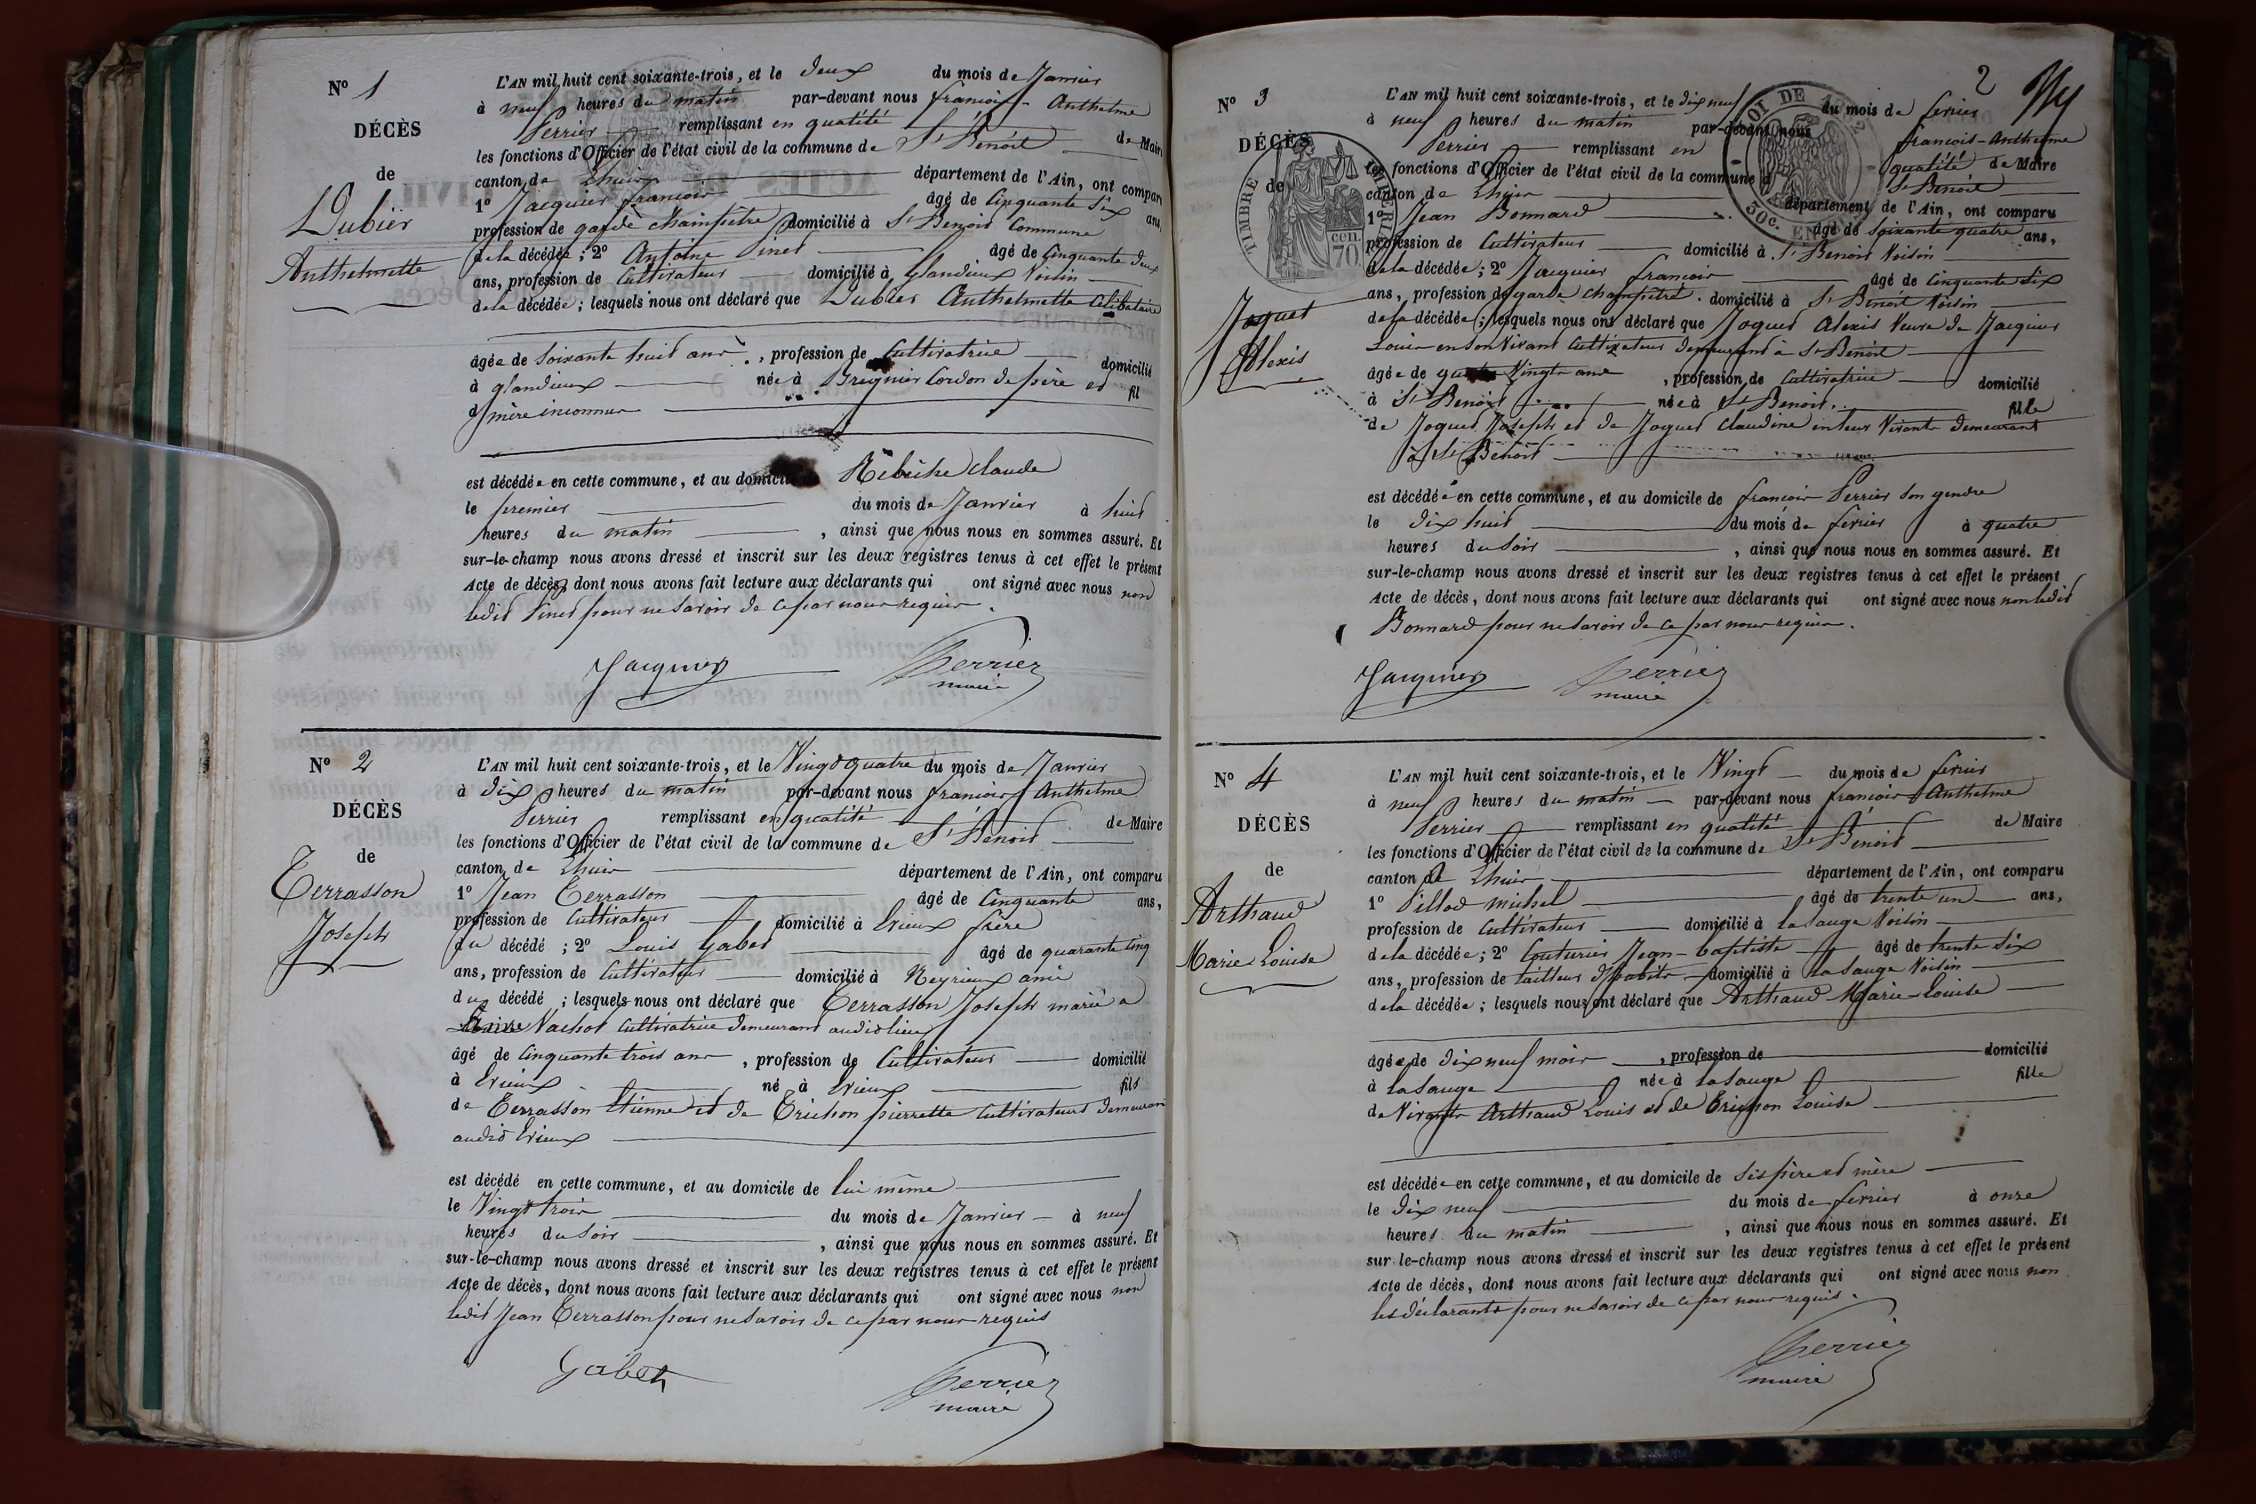 N° 1
DÉCÈS
de
Dubier
Anthelmette
L'AN mil huit cent soixante-trois, et le deux du mois de Janvier
à neuf heures du matin par-devant nous françois-Anthelme
Perrier remplissant en qualité de Maire
les fonctions d'Officier de l'état civil de la commune de St Benoit
canton de Lhuis département de l'Ain, ont comparu
1° Jacquier françois âgé de Cinquante Six ans,
profession de garde champêtre domicilié à St Benoit Commune
de la décédée ; 2° Antoine Pinet âgé de Cinquante deux
ans, profession de Cultivateur domicilié à Glandieux Voisin
de la décédée ; lesquels nous ont déclaré que Dubier Anthelmette Célibataire
âgée de Soixante huit ans, profession de Cultivatrice domicilié
à glandieux née à Bregnier Cordon de père et fil
d mère inconnus
est décédée en cette commune, et au domicile Claude
le premier du mois de Janvier à huit
heures du matin, ainsi que nous nous en sommes assuré. Et
sur-le-champ nous avons dressé et inscrit sur les deux registres tenus à cet effet le présent
Acte de décès, dont nous avons fait lecture aux déclarants qui ont signé avec nous non
ledit Pinet pour ne savoir de ce par nous requis.
Jacquier Perrier
maire
N° 2
DÉCÈS
de
Terrasson
Joseph
L'AN mil huit cent soixante-trois, et le Vingt quatre du mois de Janvier
à dix heures du matin par-devant nous françois Anthelme
Perrier remplissant en qualité de Maire
les fonctions d'Officier de l'état civil de la commune de St Benoit
canton de Lhuis département de l'Ain, ont comparu
1° Jean Terrasson âgé de Cinquante ans,
profession de Cultivateur domicilié à Evieux frère
du décédé ; 2° Louis Gabet âgé de quarante cinq
ans, profession de Cultivateur domicilié à Neyrieux ami
du décédé ; lesquels nous ont déclaré que Terrasson Joseph marié a
Vachot Cultivatrice demeurant audit lieu
âgé de Cinquante trois ans, profession de Cultivateur domicilié
à Evieux né à Evieux fils
de Terrasson Etienne et de Trichon pierrette Cultivateurs demeurant
audit Evieux
est décédé en cette commune, et au domicile de lui même
le Vingt trois du mois de Janvier à neuf
heures du Soir, ainsi que nous nous en sommes assuré. Et
sur-le-champ nous avons dressé et inscrit sur les deux registres tenus à cet effet le présent
Acte de décès, dont nous avons fait lecture aux déclarants qui ont signé avec nous non
ledit Jean Terrasson pour ne savoir de ce par nous requis
Gabet Perrier
maire
2
N° 3
DÉCÈS
de
Joguet
Alexis
TIMBRE IMPERIAL
CCII.
70
LOI DE
30c. EN
L'AN mil huit cent soixante-trois, et le dix neuf du mois de fevrier
à neuf heures du matin par-devant nous françois-Anthelme
Perrier remplissant en qualité de Maire
les fonctions d'Officier de l'état civil de la commune de St Benoit
canton de Lhuis département de l'Ain, ont comparu
1° Jean Bonnard âgé de Soixante quatre ans,
profession de Cultivateur domicilié à St Benoit Voisin
de la décédée ; 2° Jacquier françois âgé de Cinquante Six
ans, profession de garde champêtre. domicilié à St Benoit Voisin
de la décédée ; lesquels nous ont déclaré que Joguet Alexis Veuve de Jacquier
Louis en son Vivant Cultivateur demeurant à St Benoit
âgée de quatre Vingts ans, profession de Cultivatrice domicilié
à St Benoit née à St Benoit fille
de Joguet Joseph et de Joguet Claudine en leur Vivant demeurant
à St Benoit
est décédée en cette commune, et au domicile de françois Perrier Son gendre
le dix huit du mois de fevrier à quatre
heures du Soir, ainsi que nous nous en sommes assuré. Et
sur-le-champ nous avons dressé et inscrit sur les deux registres tenus à cet effet le présent
Acte de décès, dont nous avons fait lecture aux déclarants qui ont signé avec nous non ledit
Bonnard pour ne savoir de ce par nous requis.
Jacquier Perrier
maire
N° 4
DÉCÈS
de
Arthaud
Marie Louise
L'AN mil huit cent soixante-trois, et le Vingt du mois de fevrier
à neuf heures du matin par-devant nous françois Anthelme
Perrier remplissant en qualité de Maire
les fonctions d'Officier de l'état civil de la commune de St Benoit
canton de Lhuis département de l'Ain, ont comparu
1° Pillod michel âgé de trente un ans,
profession de Cultivateur domicilié à la Sauge Voisin
de la décédée ; 2° Couturier Jean-baptiste âgé de trente Six
ans, profession de tailleur d'habits domicilié à la Sauge Voisin
de la décédée ; lesquels nous ont déclaré que Arthaud Marie-Louise
âgée de dix neuf mois, profession de domicilié
à la Sauge née à la Sauge fille
de Vivants Arthaud Louis et de Trichon Louise
est décédée en cette commune, et au domicile de Ses père et mère
le dix neuf du mois de fevrier à onze
heures du matin, ainsi que nous nous en sommes assuré. Et
sur-le-champ nous avons dressé et inscrit sur les deux registres tenus à cet effet le présent
Acte de décès, dont nous avons fait lecture aux déclarants qui ont signé avec nous non
les déclarants pour ne savoir de ce par nous requis.
Perrier
maire